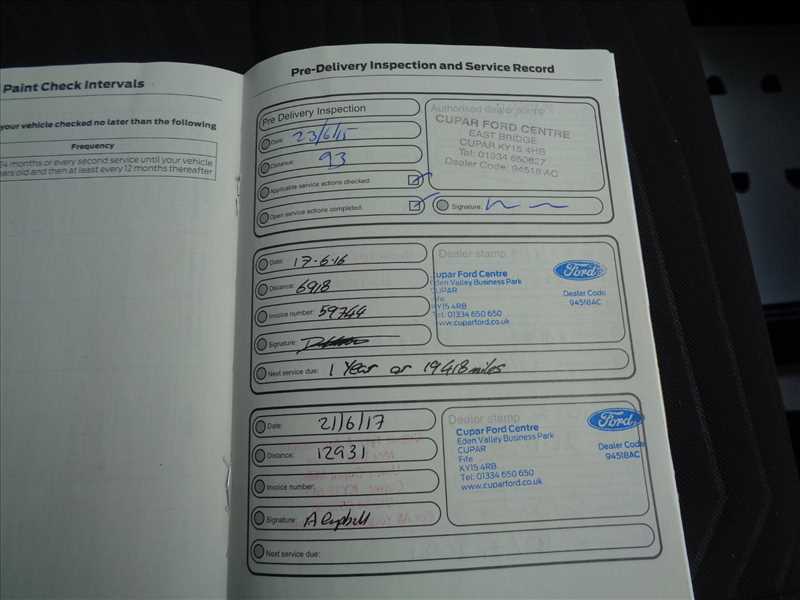 Paint Check Intervals
your vehicle checked no later than the following
Frequency
months or every second service until your vehicle
years old and then at least every 12 months thereafter
Pre-Delivery Inspection and Service Record
Pre Delivery Inspection
Date: 23/6/15
Distance: 93
Applicable service actions checked:
Open service actions completed:
Authorised dealer stamp
CUPAR FORD CENTRE
EAST BRIDGE
CUPAR KY15 4HB
Tel: 01334 650627
Dealer Code: 94518 AC
Signature:
Date: 17-6-16
Distance: 6918
Invoice number: 59744
Signature:
Next service due: 1 Year or 19418 miles
Dealer stamp
Cupar Ford Centre
Eden Valley Business Park
CUPAR
Fife
KY15 4RB
Tel: 01334 650 650
www.cuparford.co.uk
Ford
Dealer Code
94518AC
Date: 21/6/17
Distance: 12931
Invoice number:
Signature: A Campbell
Next service due:
Dealer stamp
Cupar Ford Centre
Eden Valley Business Park
CUPAR
Fife
KY15 4RB
Tel: 01334 650 650
www.cuparford.co.uk
Ford
Dealer Code
94518AC